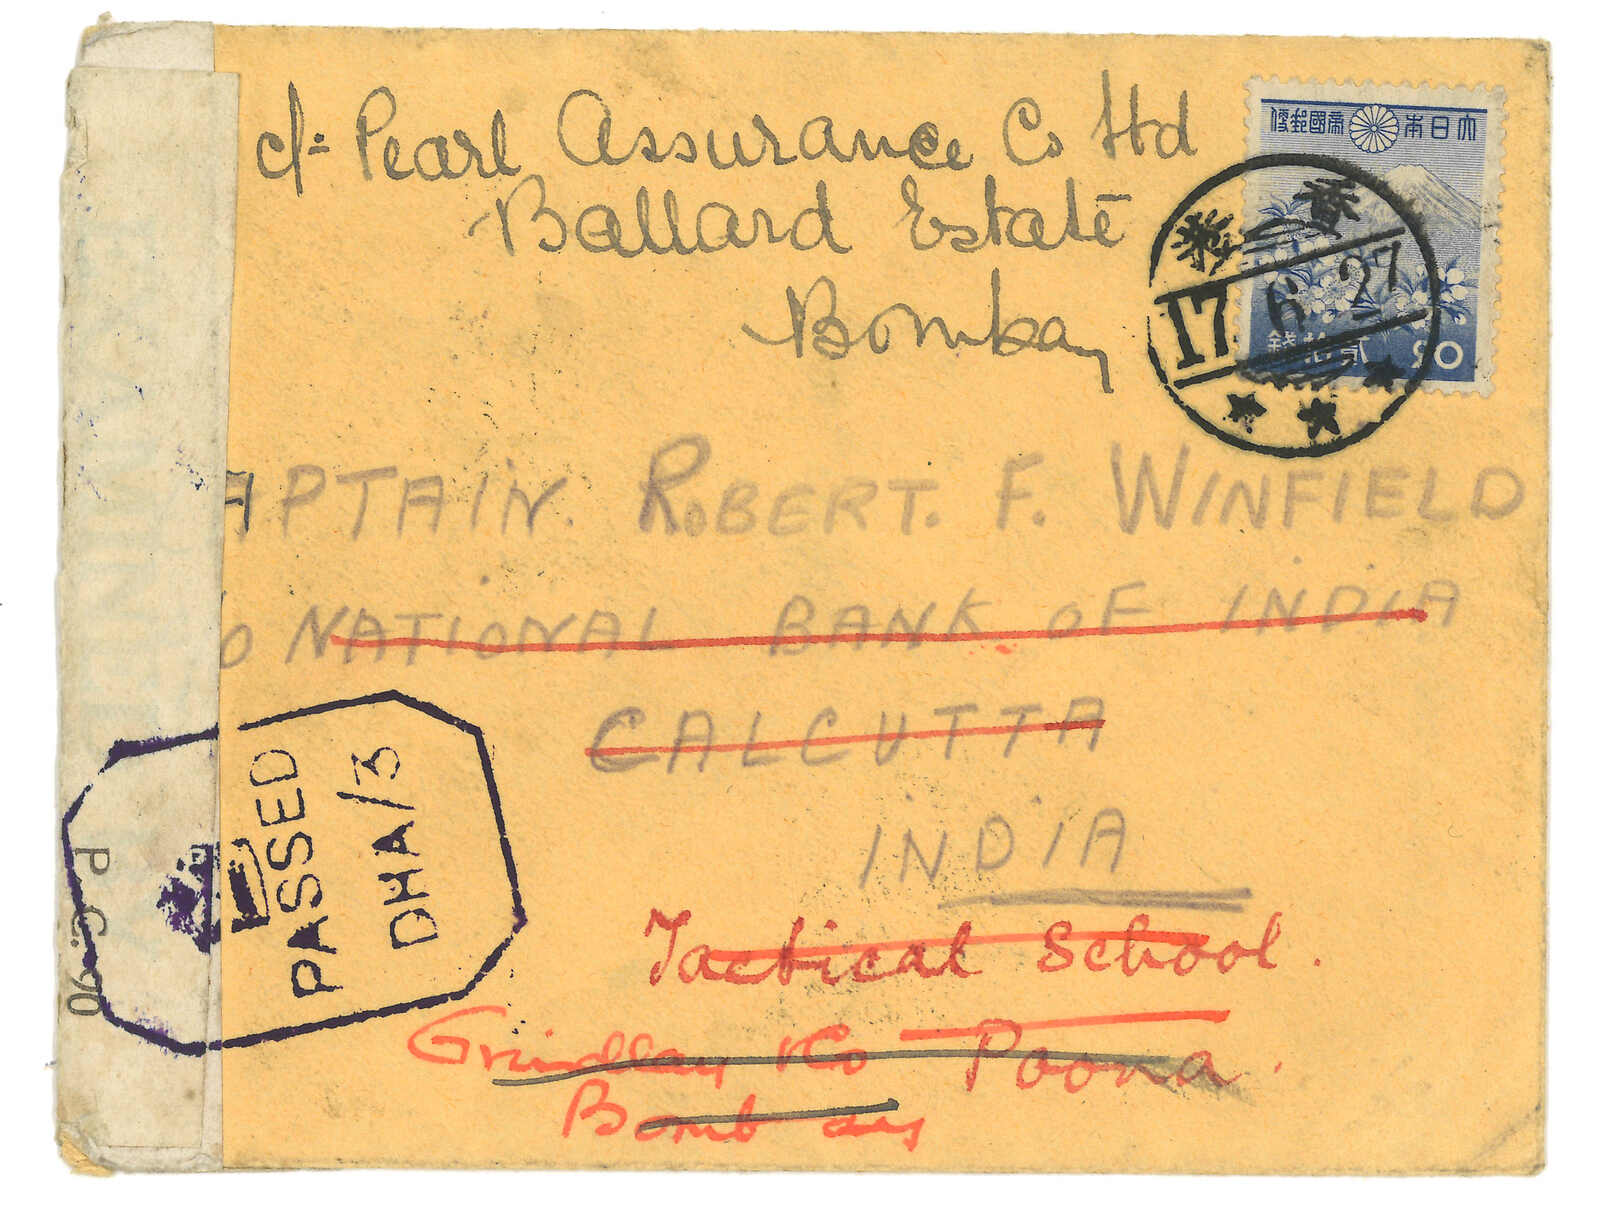 c/= Pearl Assurance Co Ltd
Ballard Estate
Bombay
大日本帝國郵便
貳拾錢
20
17. 6. 27
APTAIN. ROBERT. F. WINFIELD
O NATIONAL BANK OF INDIA
CALCUTTA
INDIA
Tactical School.
Poona.
Grindlay & Co
Bombay
PASSED
DHA/3
P.C. 90